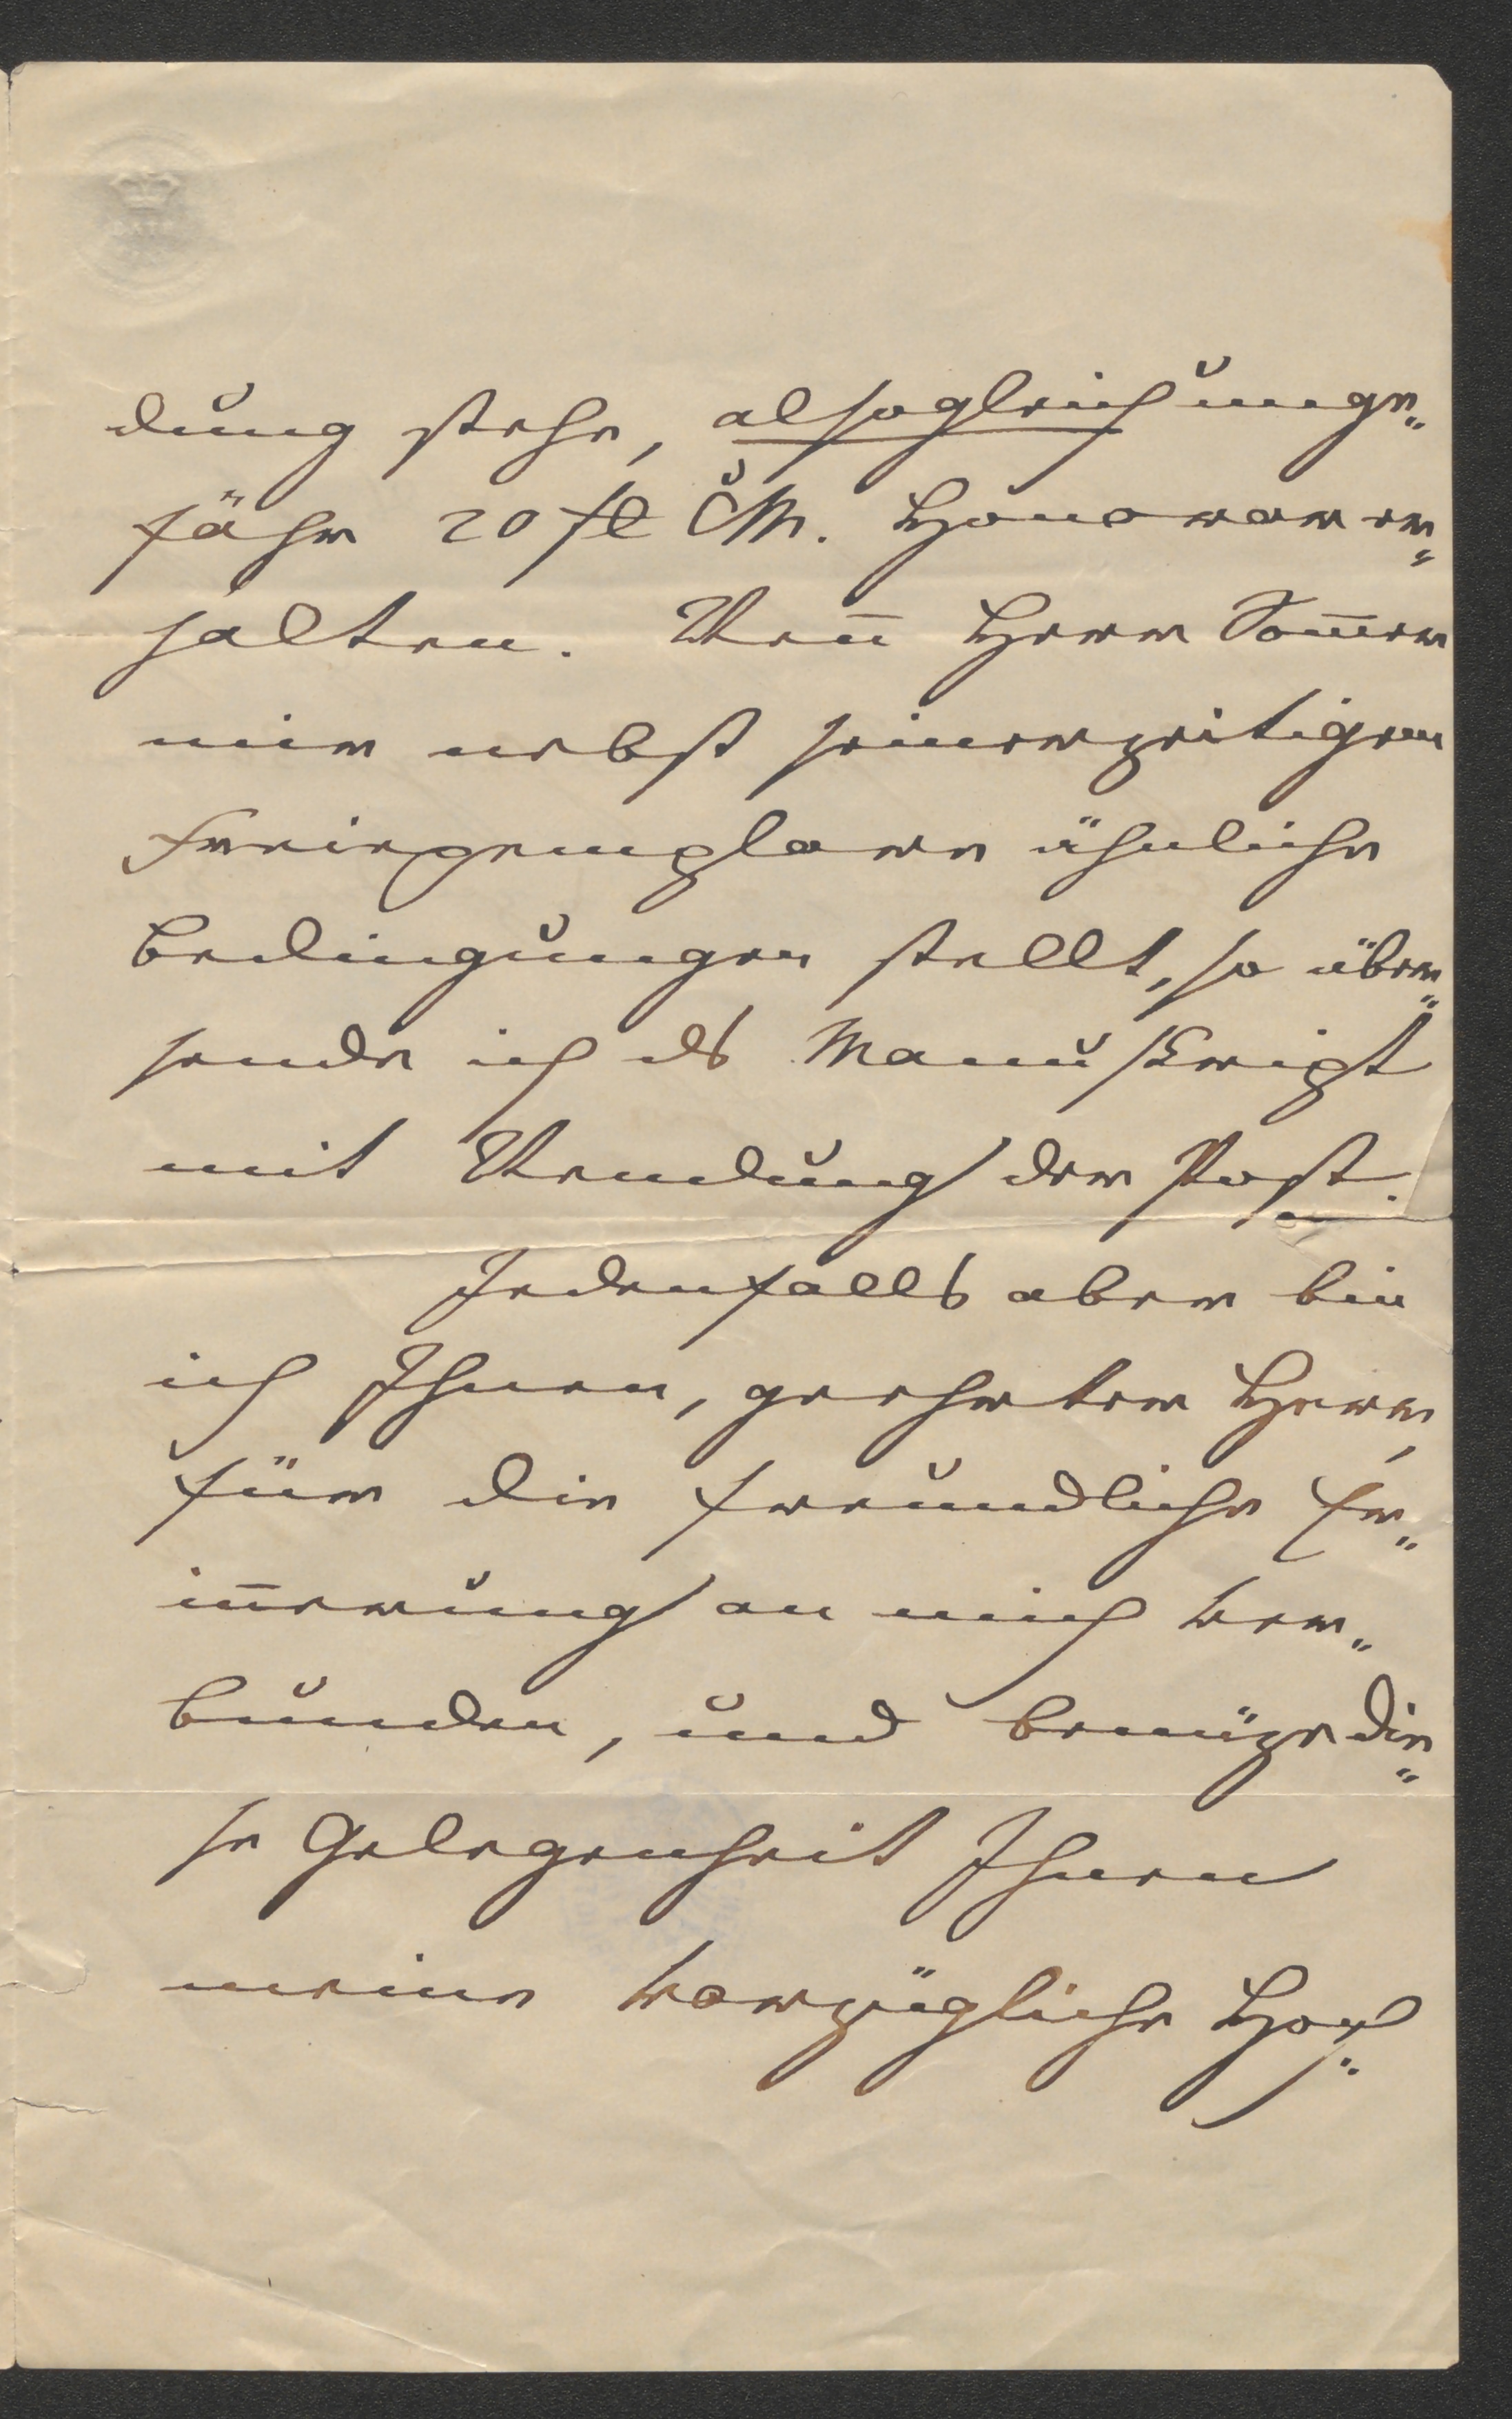 dung stehe, alsogleich unge„
fähr 20 fl CM. Honorar er„
halten. Wen̅ Herr Som̅er
mir nebst seinerzeitigem
Freiexemplare ähnliche
Bedingungen stellt, so über„
sende ich ds Manuskript
mit Wendung der Post.
Jedenfalls aber bin
ich Ihnen, geehrter Herr,
für die freundliche Er„
in̅erung an mich ver„
bunden, und benüze die„
se Gelegenheit Ihnen
meine vorzügliche Hoch„